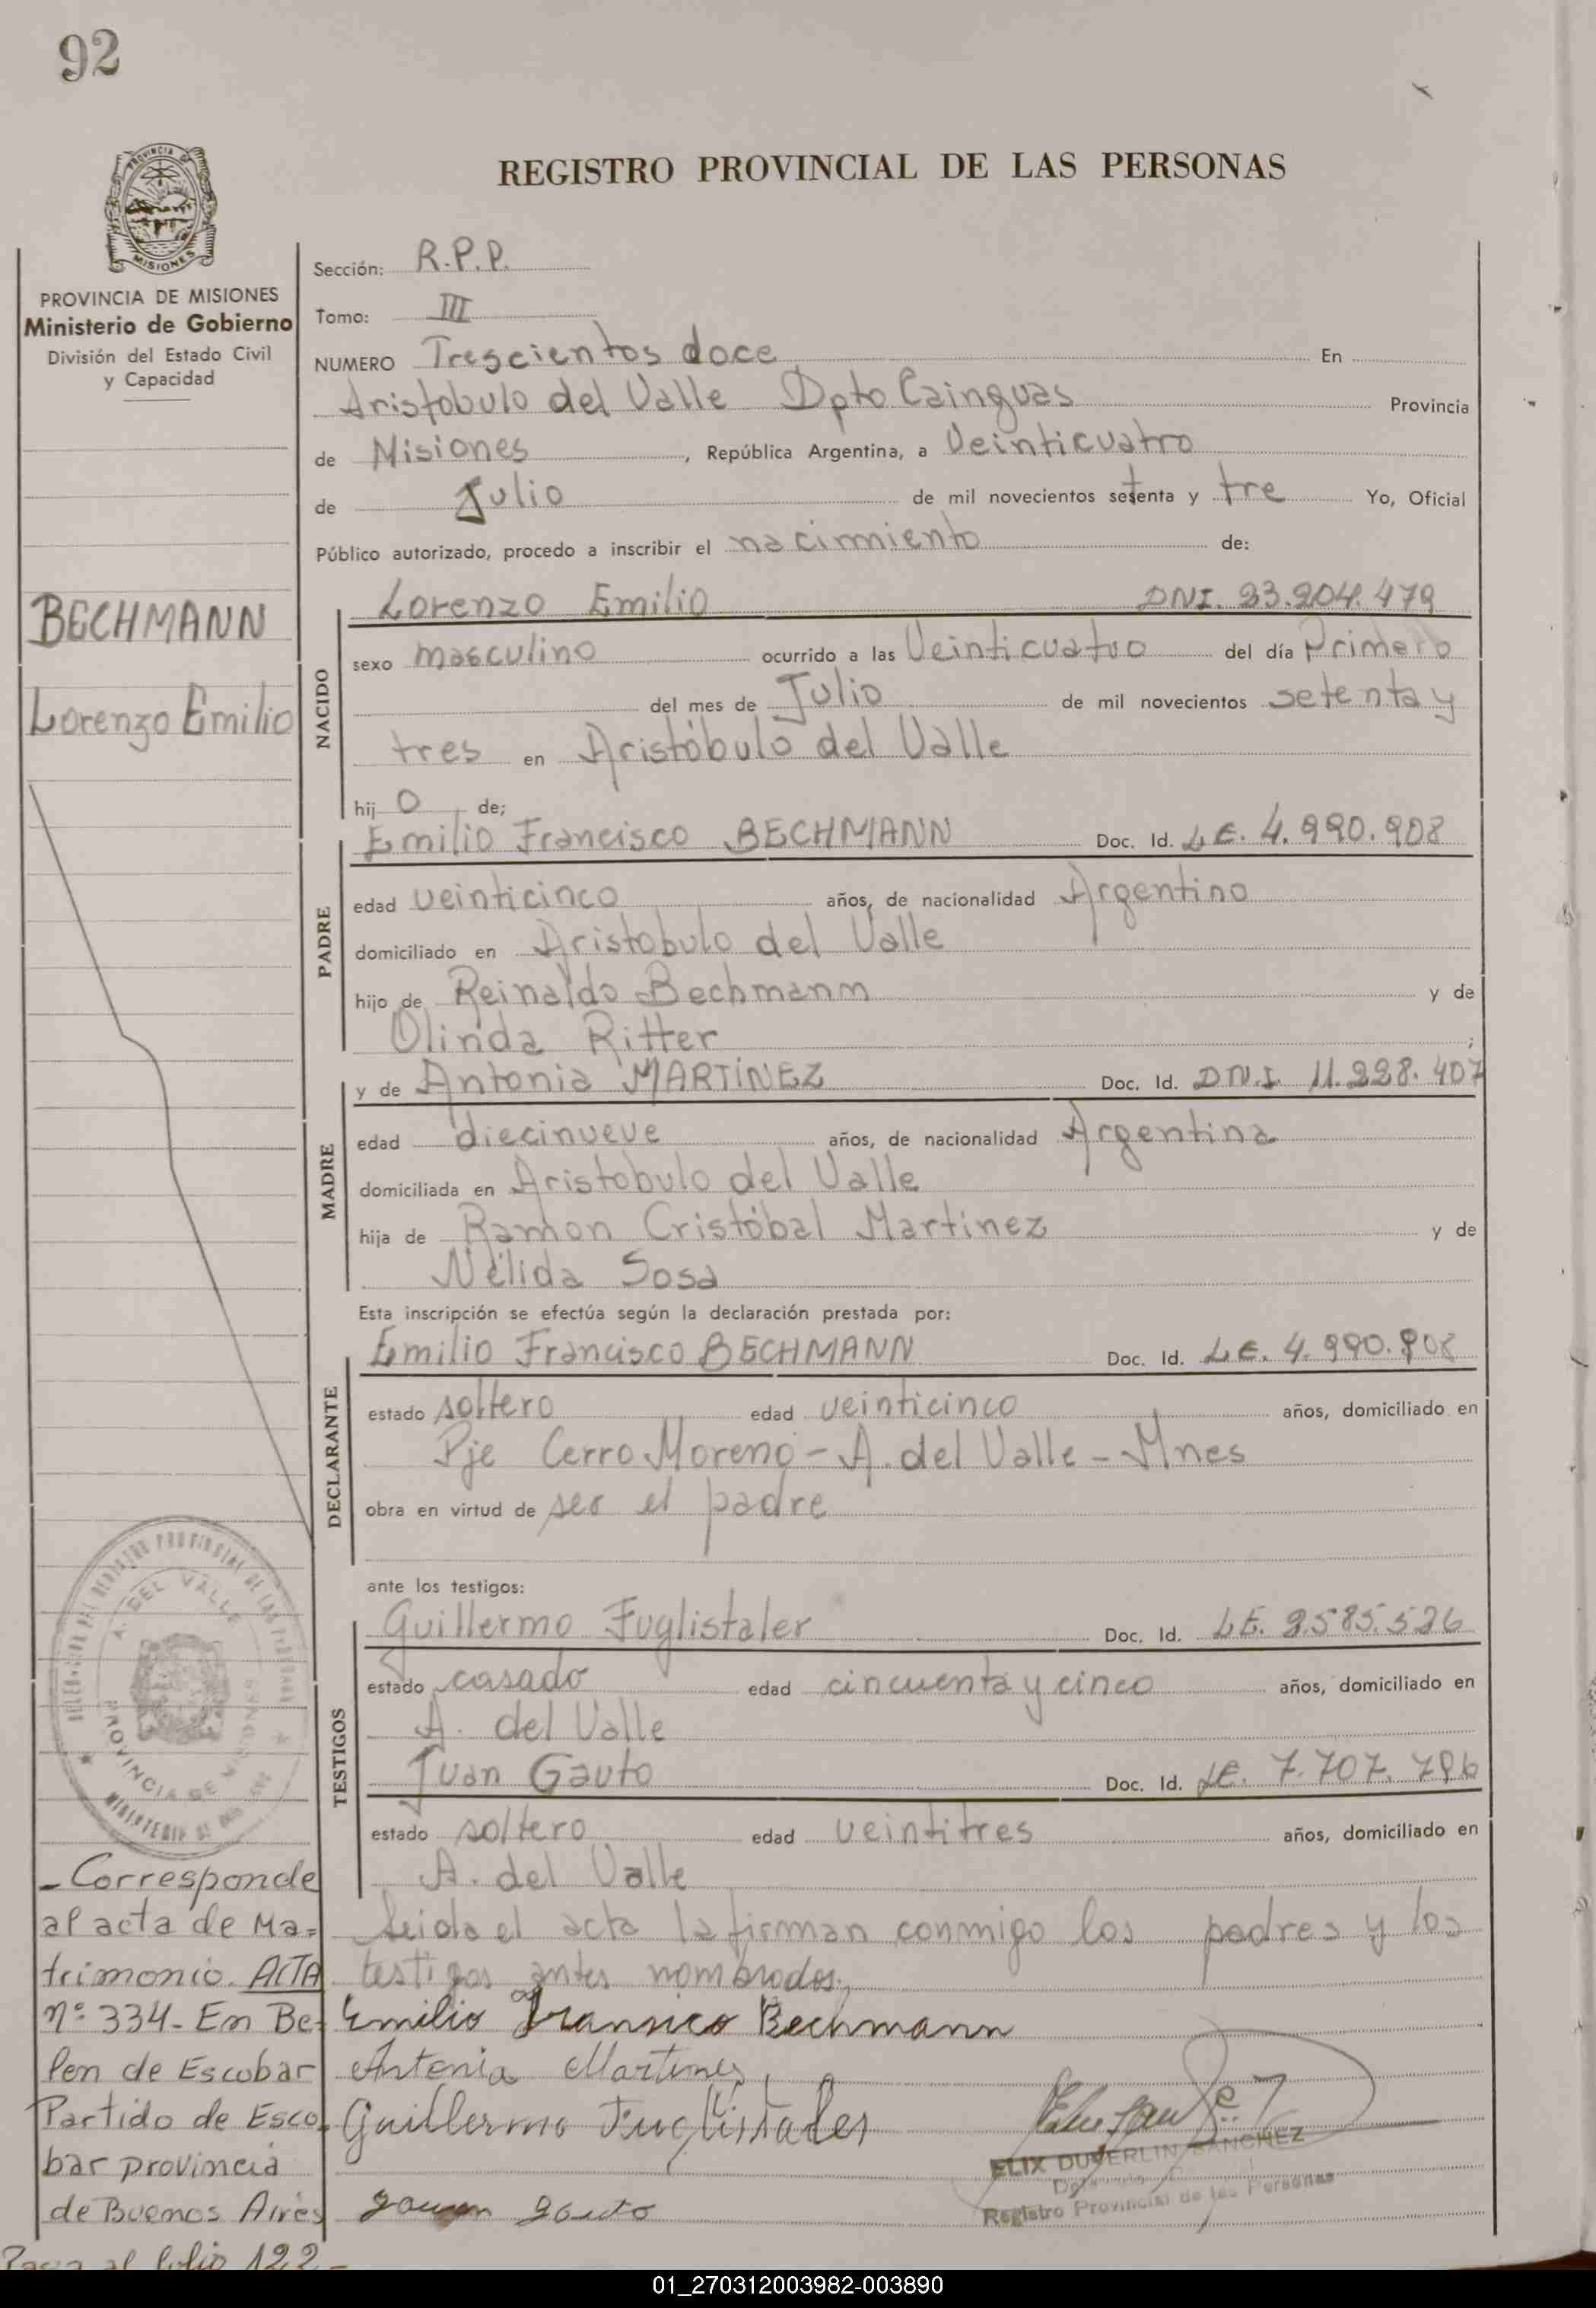 92
REGISTRO PROVINCIAL DE LAS PERSONAS
PROVINCIA DE MISIONES
Ministerio de Gobierno
División del Estado Civil
y Capacidad
BECHMANN
Lorenzo Emilio
Sección: R.P.P.
Tomo: III
NUMERO Trescientos doce En
Aristobulo del Valle Dpto Cainguas Provincia
de Misiones, República Argentina, a Veinticuatro
de Julio de mil novecientos setenta y tre Yo, Oficial
Público autorizado, procedo a inscribir el nacimiento de:
NACIDO
Lorenzo Emilio DNI. 23.204.479
sexo masculino ocurrido a las Veinticuatro del día Primero
del mes de Julio de mil novecientos setenta y
tres en Aristóbulo del Valle
hijo de;
PADRE
Emilio Francisco BECHMANN Doc. Id. L.E. 4.990.908
edad veinticinco años, de nacionalidad Argentino
domiciliado en Aristobulo del Valle
hijo de Reinaldo Bechmann y de
Olinda Ritter;
MADRE
y de Antonia MARTÍNEZ Doc. Id. D.N.I. 11.228.407
edad diecinueve años, de nacionalidad Argentina
domiciliada en Aristobulo del Valle
hija de Ramon Cristóbal Martinez y de
Nélida Sosa
Esta inscripción se efectúa según la declaración prestada por:
DECLARANTE
Emilio Francisco BECHMANN Doc. Id. L.E. 4.990.908
estado soltero edad veinticinco años, domiciliado en
Pje Cerro Moreno - A. del Valle - Mnes
obra en virtud de ser el padre
ante los testigos:
TESTIGOS
Guillermo Fuglistaler Doc. Id. L.E. 2.585.526
estado casado edad cincuenta y cinco años, domiciliado en
A. del Valle
Juan Gauto Doc. Id. L.E. 7.707.796
estado soltero edad veintitres años, domiciliado en
A. del Valle
Leida el acta la firman conmigo los padres y los
testigos antes nombrados.
Emilio Fransico Bechmann
Antonia Martines
Guillermo Fuglistaler
Juan Gauto
ELIX DUVERLIN SANCHEZ
Registro Provincial de las Personas
A. DEL VALLE
PROVINCIA DE MISIONES
- Corresponde
al acta de Ma=
trimonio. ACTA
nº 334- En Be-
len de Escobar
Partido de Esco-
bar provincia
de Buenos Aires
Pasa al folio 122-
01_270312003982-003890